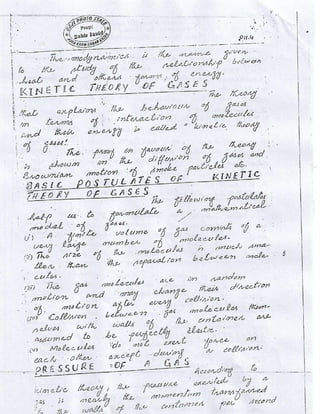 Thermodynamics is the name given
to the study of the relationship between
heat and others forms of energy.
KINETIC THEORY OF GASES
The theory
that explains the behaviour of gases
in terms of interaction of molecules
and their energy is called "kinetic theory
of gases!
The proof in favour of the theory
is shown on the diffusion of gases and
Brownian motion of smoke particles etc.
BASIC POSTULATES OF KINETIC
THEORY OF GASES
The following postulates
help us to formulate a mathematical
model of gases.
(i) A finite volume of gas consists of a
very large number of molecules.
(ii) The size of the molecules is much sma-
ller than the separation between mole-
cules.
(iii) The gas molecules are in random
motion and may change their direction
of motion after every collision.
(iv) Collision between gas molecules them-
selves with walls of the container are
assumed to be perfectly elastic.
(v) Molecules do not exert force on
each other except during a collision.
PRESSURE OF A GAS
According to
kinetic theory, the pressure exerted by a
gas is merely the momentum transferred
to the walls of the container per second